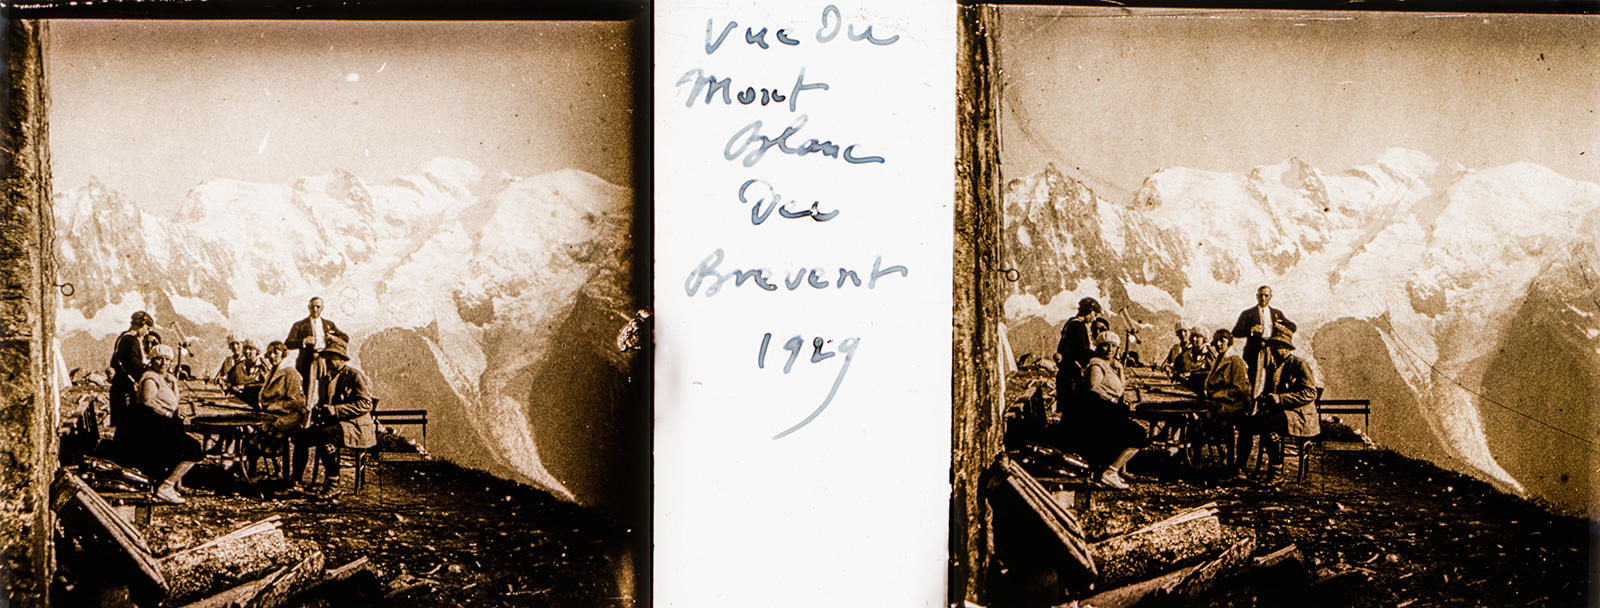 Vue Du
Mont
Blanc
Des
Brevent
1929